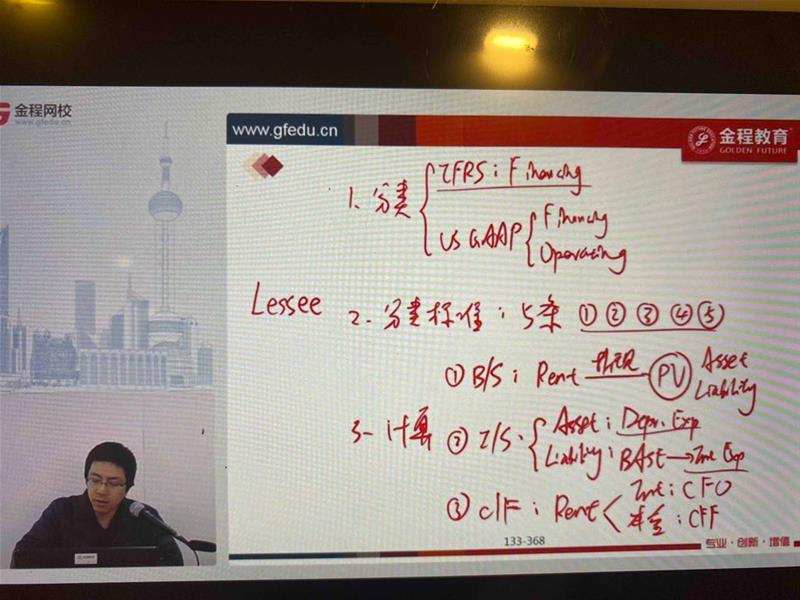 金程网校
www.gfedu.cn
www.gfedu.cn
金程教育
GOLDEN FUTURE
Lessee
1、分类
IFRS: Financing
US GAAP
Financing
Operating
2、分类标准: 5条 ① ② ③ ④ ⑤
3、计算
① B/S: Rent 折现 PV Asset
Liability
② I/S: Asset: Depr. Exp
Liability: BASE → Int Exp
③ C/F: Rent < Int: CFO
本金: CFF
133-368
专业·创新·增值